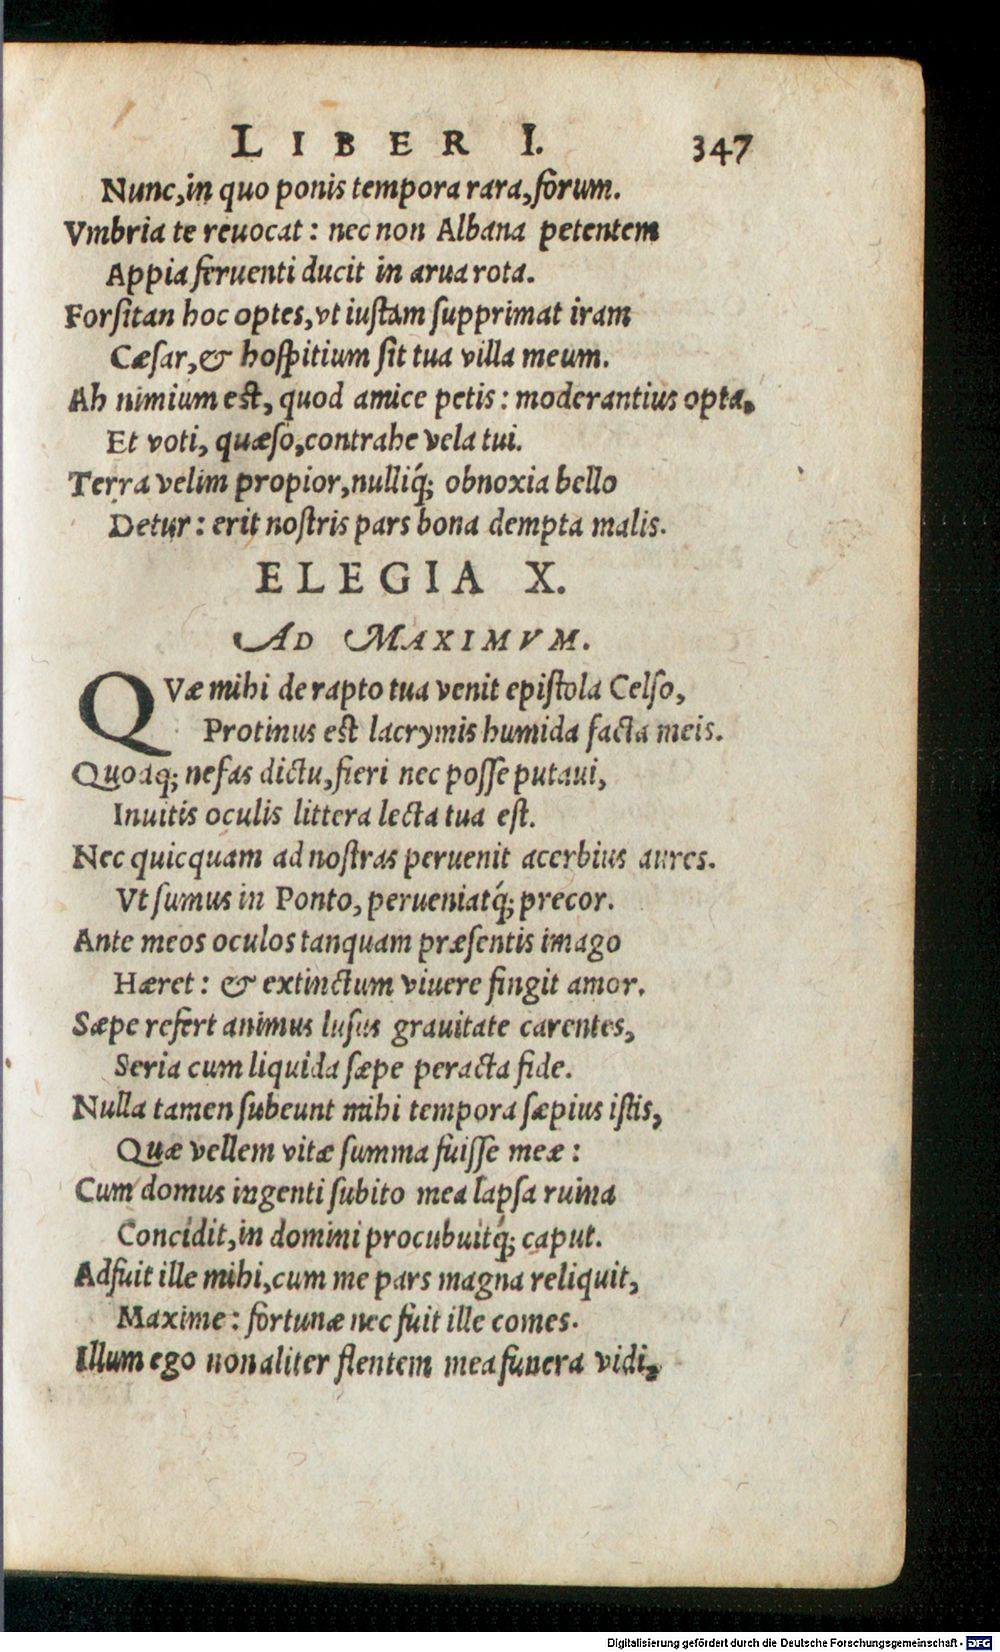 LIBER I. 347
Nunc, in quo ponis tempora rara, forum.
Vmbria te reuocat: nec non Albana petentem
Appia feruenti ducit in arua rota.
Forsitan hoc optes, vt iustam supprimat iram
Cæsar, & hospitium sit tua villa meum.
Ah nimium est, quod amice petis: moderantius opta,
Et voti, quæso, contrahe vela tui.
Terra velim propior, nulliq́; obnoxia bello
Detur: erit nostris pars bona dempta malis.
ELEGIA X.
AD MAXIMVM.
QVæ mihi de rapto tua venit epistola Celso,
Protinus est lacrymis humida facta meis.
Quodq; nefas dictu, fieri nec posse putaui,
Inuitis oculis littera lecta tua est.
Nec quicquam ad nostras peruenit acerbius aures.
Vt sumus in Ponto, perueniatq́; precor.
Ante meos oculos tanquam præsentis imago
Hæret: & extinctum viuere fingit amor.
Sæpe refert animus lusus grauitate carentes,
Seria cum liquida sæpe peracta fide.
Nulla tamen subeunt mihi tempora sæpius istis,
Quæ vellem vitæ summa fuisse meæ:
Cum domus ingenti subito mea lapsa ruina
Concidit, in domini procubuitq́; caput.
Adfuit ille mihi, cum me pars magna reliquit,
Maxime: fortunæ nec fuit ille comes.
Illum ego non aliter flentem mea funera vidi,
Digitalisierung gefördert durch die Deutsche Forschungsgemeinschaft - DFG